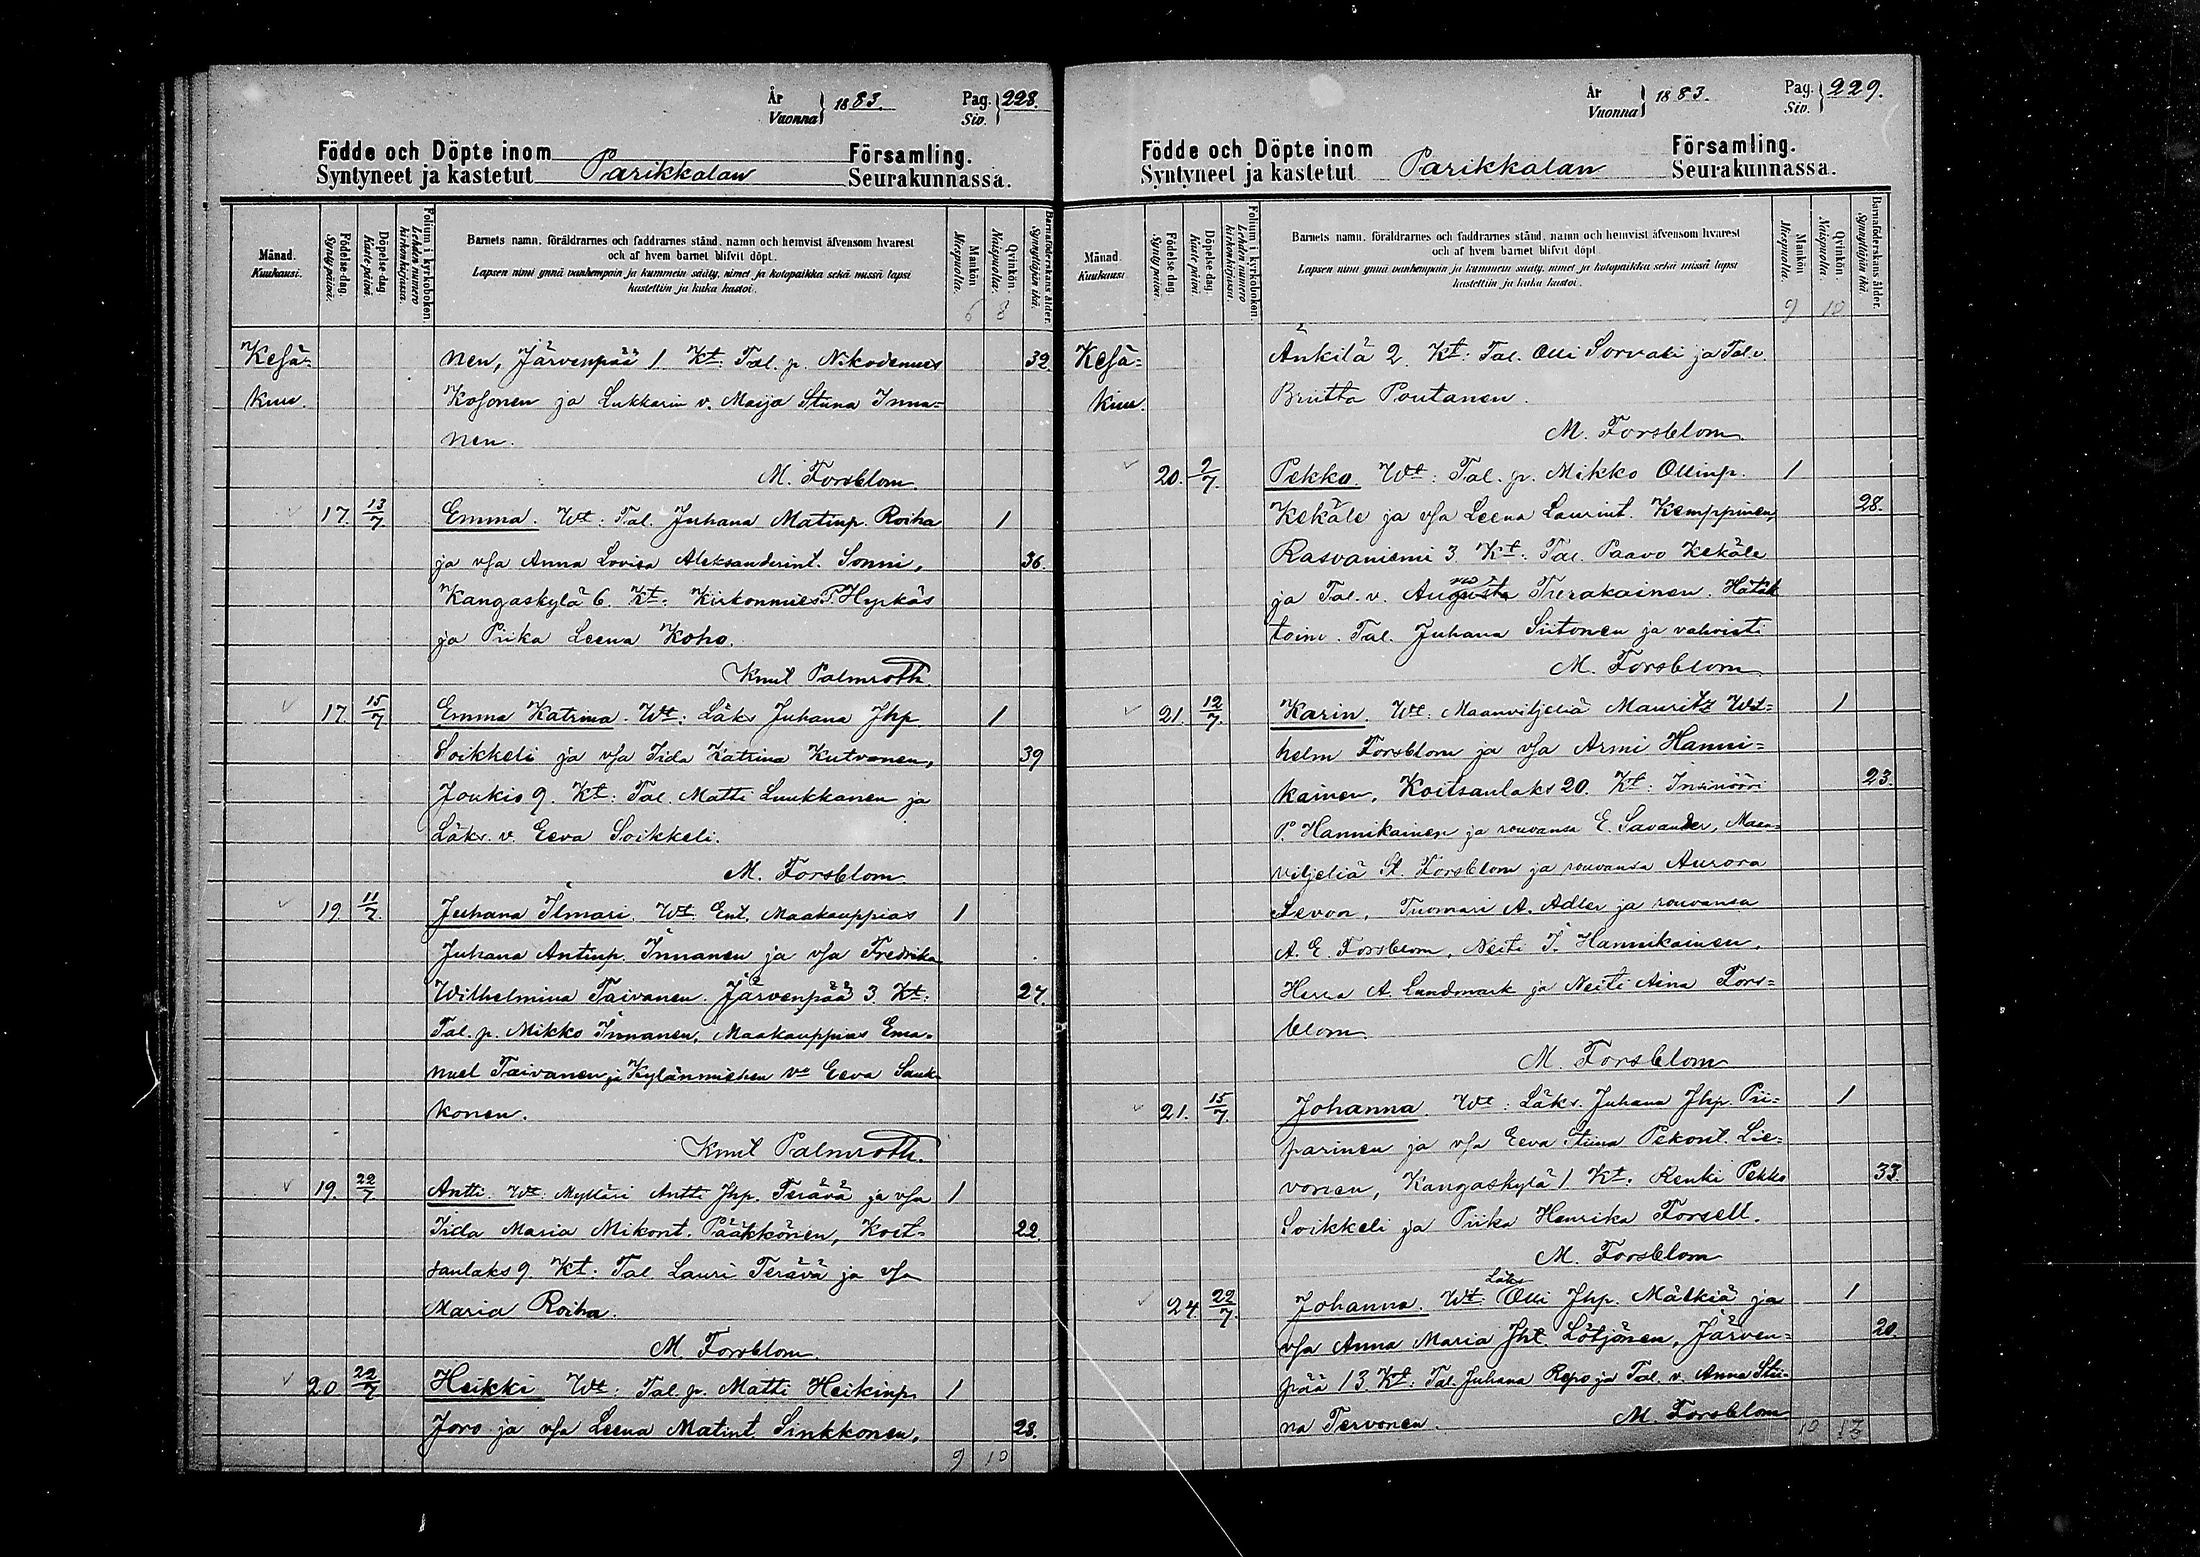 År
Vuonna } 1883.
Pag.
Siv. } 228.
Födde och Döpte inom
Syntyneet ja kastetut Parikkalan
Församling.
Seurakunnassa.
Månad.
Kuukausi.
Födelse-dag.
Synty-päivä.
Döpelse-dag.
Kaste-päivä.
Folium i kyrkoboken.
Lehden numero kirkonkirjassa.
Barnets namn, föräldrarnes och faddrarnes stånd, namn och hemvist äfvensom hvarest
och af hvem barnet blifvit döpt.
Lapsen nimi ynnä vanhempain ja kummein sääty, nimet ja kotopaikka sekä missä lapsi
kastettiin ja kuka kastoi.
Mankön.
Miespuolia.
Qvinkön.
Naispuolia.
Barnaföderskans ålder.
Synnyttäjän ikä.
6 8
Kesä- nen, Järvenpää 1 Kt: Tal. p. Nikodemus 32.
kuu. Kosonen ja Lukkarin v. Maija Stuna Inna=
nen.
M. Forsblom.
17. 13/7 Emma. Wt: Tal. Juhana Matinp. Roiha 1
ja vsa Anna Lovisa Aleksanderint. Sonni, 36.
Kangaskylä 6. Kt: Kirkonmies P. Hyrkäs
ja Piika Leena Koho.
Knut Palmroth.
17. 15/7 Emma Katrina. Wt: Läks Juhana Jhp 1
Soikkeli ja vsa Iida Katrina Kutvonen, 39
Joukio 9. Kt: Tal. Matti Luukkanen ja
Läks. v. Eeva Soikkeli.
M. Forsblom.
19. 11/7. Juhana Ilmari. Wt. Ent. Maakauppias 1
Juhana Antinp. Innanen ja vsa Fredrika
Wilhelmina Taivanen. Järvenpää 3. Kt: 27.
Tal. p. Mikko Innanen, Maakauppias Ema-
nuel Taivanen ja Kylänmiehen vo Eeva Sink-
konen.
Knut Palmroth.
19. 22/7 Antti. Wt: Mylläri Antti Jhp. Terävä ja vsa 1
Iida Maria Mikont. Pääkkönen, Koit= 22.
sanlaks 9. Kt: Tal Lauri Terävä ja vsa
Maria Roiha.
M. Forsblom.
20 22/7 Heikki. Wt: Tal. p. Matti Heikinp. 1
Joro ja vsa Leena Matint. Sinkkonen, 28.
9 10
År
Vuonna } 1883.
Pag.
Siv. } 229.
Födde och Döpte inom
Syntyneet ja kastetut Parikkalan
Församling.
Seurakunnassa.
Månad.
Kuukausi.
Födelse-dag.
Synty-päivä.
Döpelse-dag.
Kaste-päivä.
Folium i kyrkoboken.
Lehden numero kirkonkirjassa.
Barnets namn, föräldrarnes och faddrarnes stånd, namn och hemvist äfvensom hvarest
och af hvem barnet blifvit döpt.
Lapsen nimi ynnä vanhempain ja kummein sääty, nimet ja kotopaikka sekä missä lapsi
kastettiin ja kuka kastoi.
Mankön.
Miespuolia.
Qvinkön.
Naispuolia.
Barnaföderskans ålder.
Synnyttäjän ikä.
9 10
Kesä- Änkilä 2. Kt: Tal. Olli Sorvali ja Tal. v.
kuu. Briitta Poutanen.
M. Forsblom.
20. 2/7. Pekko Wt: Tal. p. Mikko Ollinp. 1
Kekäle ja vsa Leena Laurint. Kemppinen, 28.
Rasvaniemi 3. Kt: Tal. Paavo Kekäle
ja Tal. v. Augusta Tierakainen. Hätäk
toim. Tal. Juhana Siitonen ja vahvisti
M. Forsblom.
21. 12/7. Karin. Wt: Maanviljeliä Mauritz Wil= 1
helm Forsblom ja vsa Armi Hanni=
kainen, Koitsanlaks 20. Kt: Insinööri 23.
P. Hannikainen ja rouvansa E. Savander, Maan=
viljeliä St. Forsblom ja rouvansa Aurora
Levon, Tuomari A. Adler ja rouvansa
A. E. Forsblom, Neiti I. Hannikainen,
Herra A. Lundmark ja Neiti Aina Fors=
blom.
M. Forsblom
21. 15/7. Johanna. Wt: Läks. Juhana Jhp. Pii= 1
parinen ja vsa Eeva Stiina Pekont. Lie=
vonen, Kangaskylä 1 Kt: Renki Pekko 33.
Soikkeli ja Piika Henrika Forsell.
M. Forsblom
24. 22/7. Johanna. Wt: Läks Olli Jhp. Mätkiä ja 1
vsa Anna Maria Jht. Lötjönen, Järven= 20.
pää 13. Kt: Tal. Juhana Repo ja Tal. v. Anna Stii-
na Tervonen. M. Forsblom
10 13